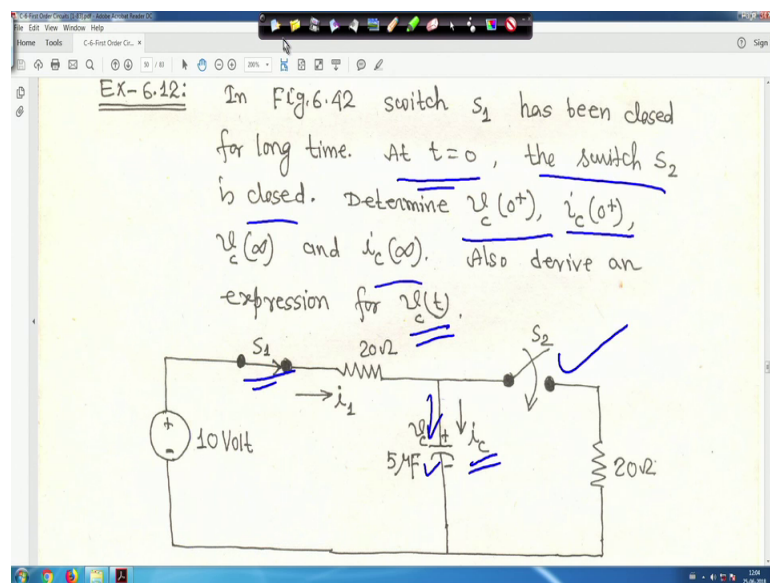 C-6-First Order Circuits [1-83].pdf - Adobe Acrobat Reader DC
File Edit View Window Help
Home Tools C-6-First Order Cir... × Sign
50 / 83 200%
EX-6.12: In Fig.6.42 switch S₁ has been closed
for long time. At t=0, the switch S₂
is closed. Determine v_c(0⁺), i_c(0⁺),
v_c(∞) and i_c(∞). Also derive an
expression for v_c(t).
S₁ 20Ω S₂
→ i₁
+ 10 Volt - v_c + i_c
5 μF - 20Ω
12:04